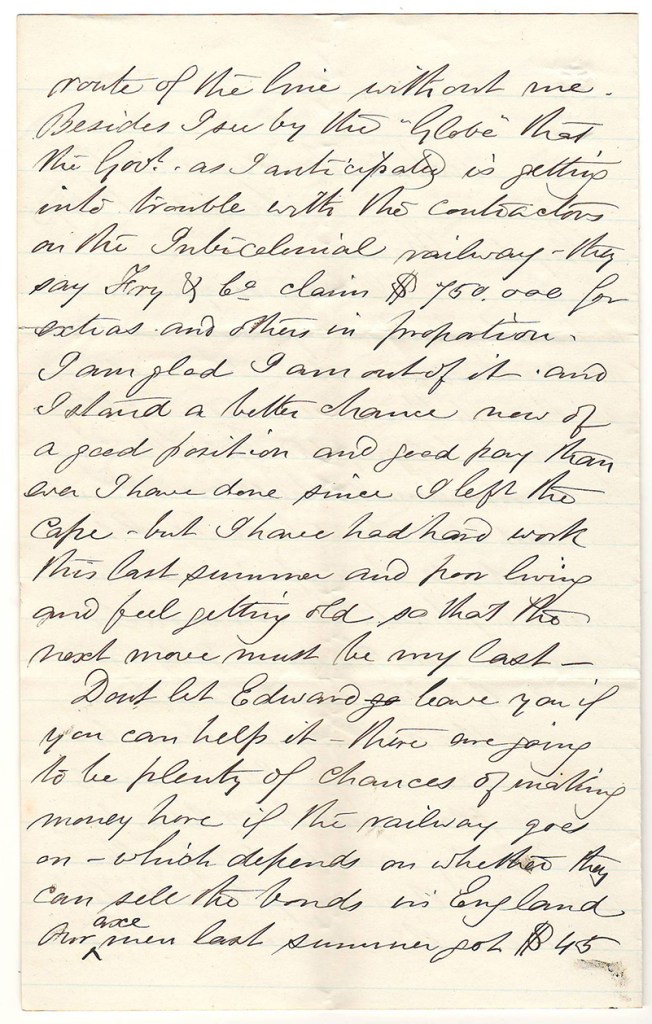 route of the line without me.
Besides I see by the "Globe" that
the Govt. as I anticipated is getting
into trouble with the contractors
on the Intercolonial railway - they
say Fry & Co claim $750.000 for
extras and others in proportion.
I am glad I am out of it. and
I stand a better chance now of
a good position and good pay than
ever I have done since I left the
Cape - but I have had hard work
this last summer and poor living
and feel getting old so that the
next move must be my last -
Dont let Edward go leave you if
you can help it - there are going
to be plenty of chances of making
money here if the railway goes
on - which depends on whether they
can sell the bonds in England
Our axe men last summer got $45